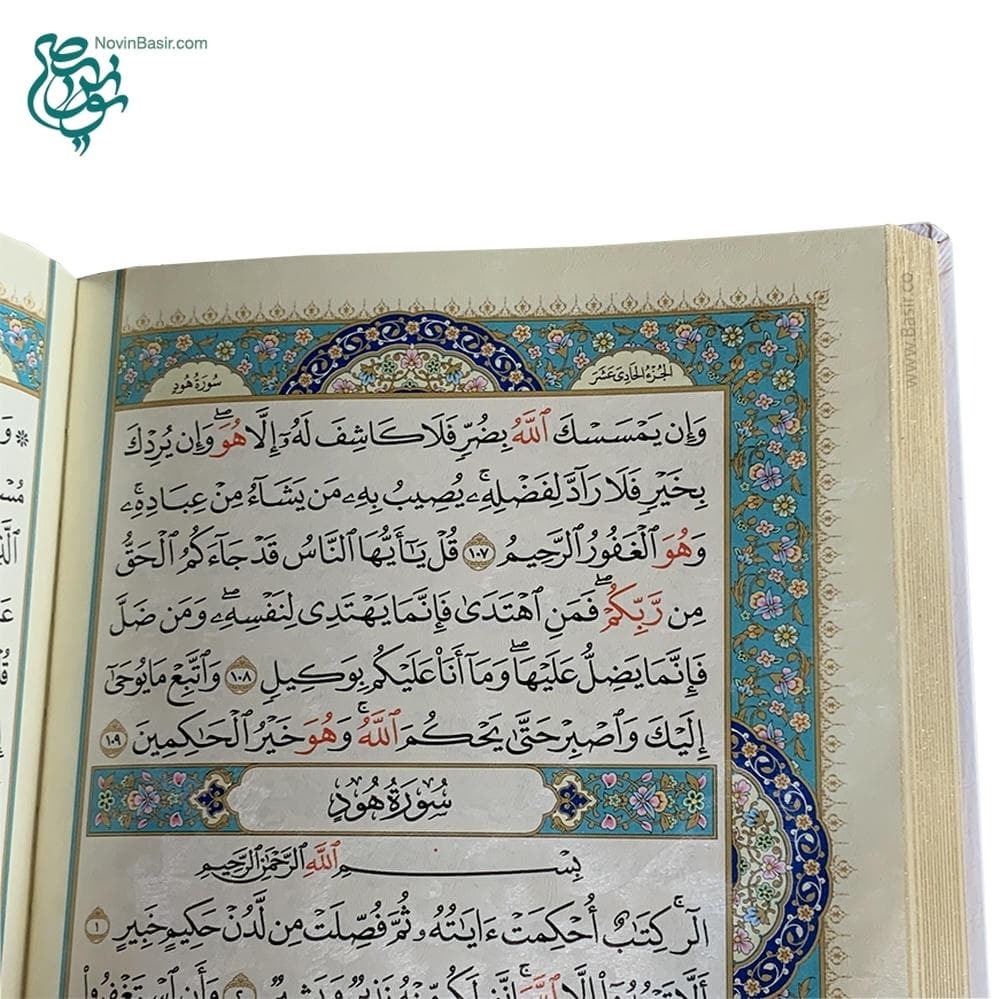 NovinBasir.com
سُورَةُ هُودٍ
الجُزءُ الحَادِي عَشَرَ
وَإِن يَمْسَسْكَ ٱللَّهُ بِضُرٍّ فَلَا كَاشِفَ لَهُۥٓ إِلَّا هُوَۖ وَإِن يُرِدْكَ
بِخَيْرٍ فَلَا رَآدَّ لِفَضْلِهِۦۚ يُصِيبُ بِهِۦ مَن يَشَآءُ مِنْ عِبَادِهِۦۚ
وَهُوَ ٱلْغَفُورُ ٱلرَّحِيمُ ١٠٧ قُلْ يَٰٓأَيُّهَا ٱلنَّاسُ قَدْ جَآءَكُمُ ٱلْحَقُّ
مِن رَّبِّكُمْۖ فَمَنِ ٱهْتَدَىٰ فَإِنَّمَا يَهْتَدِى لِنَفْسِهِۦۖ وَمَن ضَلَّ
فَإِنَّمَا يَضِلُّ عَلَيْهَاۖ وَمَآ أَنَا۠ عَلَيْكُم بِوَكِيلٍ ١٠٨ وَٱتَّبِعْ مَا يُوحَىٰٓ
إِلَيْكَ وَٱصْبِرْ حَتَّىٰ يَحْكُمَ ٱللَّهُۚ وَهُوَ خَيْرُ ٱلْحَٰكِمِينَ ١٠٩
سُورَةُ هُودٍ
بِسْمِ ٱللَّهِ ٱلرَّحْمَٰنِ ٱلرَّحِيمِ
الٓرۚ كِتَٰبٌ أُحْكِمَتْ ءَايَٰتُهُۥ ثُمَّ فُصِّلَتْ مِن لَّدُنْ حَكِيمٍ خَبِيرٍ ١
أَلَّا تَعْبُدُوٓا۟ إِلَّا ٱللَّهَۚ إِنَّنِى لَكُم مِّنْهُ نَذِيرٌ وَبَشِيرٌ ٢ وَأَنِ ٱسْتَغْفِرُوا۟
www.Basir.co